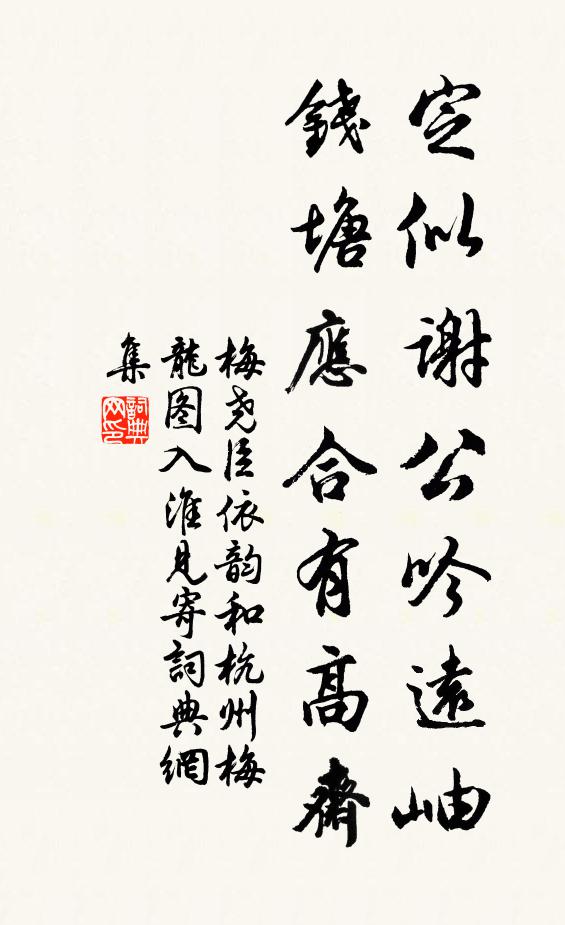 定似謝公吟遠岫
錢塘應合有高齋
梅尧臣依韵和杭州梅
龍图入淮見寄詞典網
集
詞典
网印